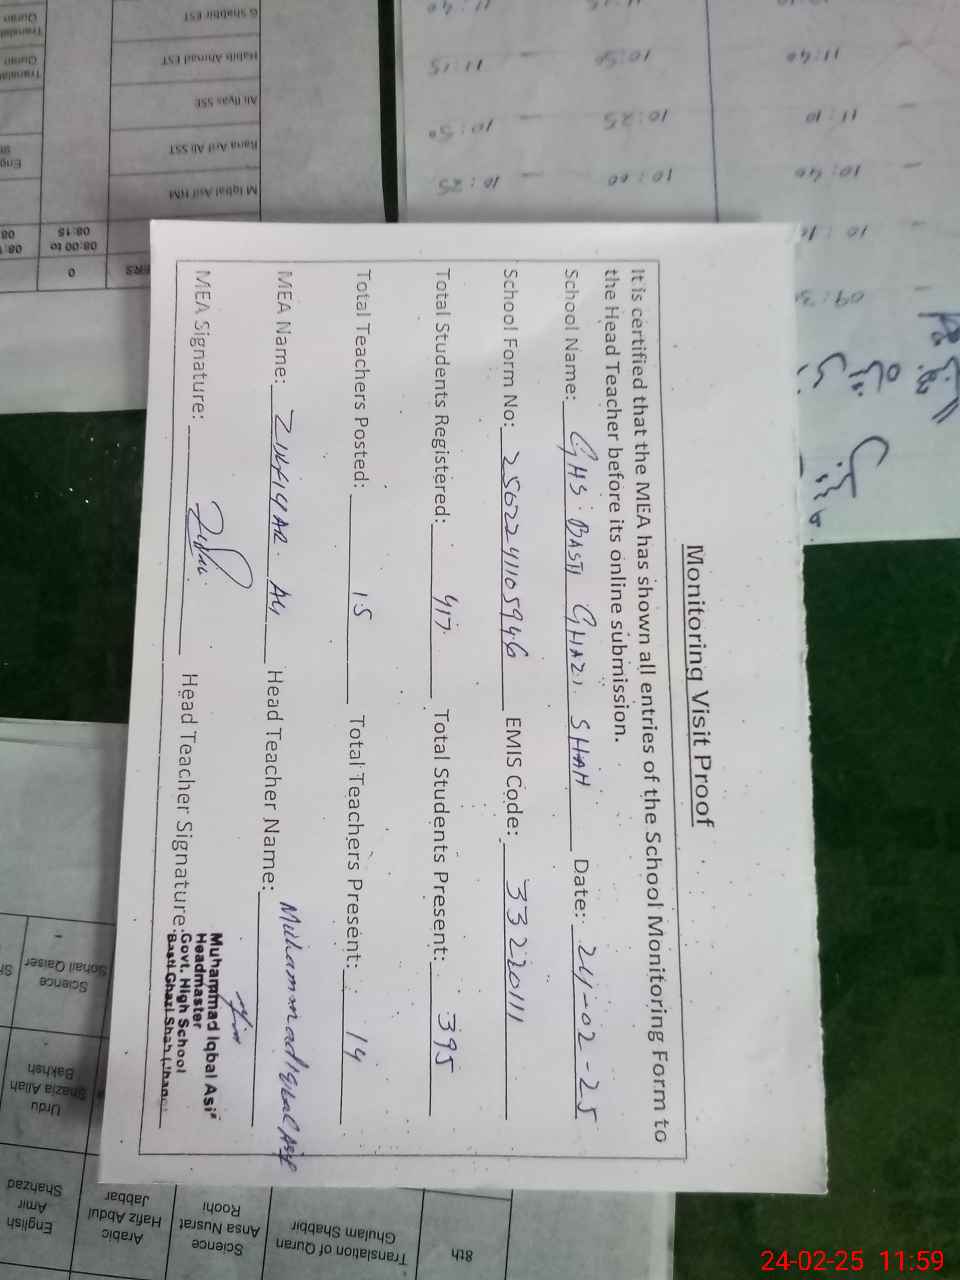 Monitoring Visit Proof
It is certified that the MEA has shown all entries of the School Monitoring Form to
the Head Teacher before its online submission.
School Name: GHS BASTI GHAZI SHAH Date: 24-02-25
School Form No: 2502241105946 EMIS Code: 33220111
Total Students Registered: 417 Total Students Present: 395
Total Teachers Posted: 15 Total Teachers Present: 14
MEA Name: ZULFIQAR Ali Head Teacher Name: Muhammad Iqbal Asif
MEA Signature: Head Teacher Signature:
Muhammad Iqbal Asif
Headmaster
Govt. High School
Basti Ghazi Shah
G Shabbir EST
Habib Ahmad EST
Ali Ilyas SSE
Rana Arif Ali SST
M Iqbal Asif HM
08:00 to
08:15
0
11:40
10:50 - 11:15
11:10
10:25 - 10:50
10:40
10:00 - 10:25
8th
Translation of Quran
Ghulam Shabbir
Science
Ansa Nusrat
Roohi
Arabic
Hafiz Abdul
Jabbar
English
Amir
Shahzad
Urdu
Shazia Allah
Bakhsh
Science
Sohail Qaiser
24-02-25 11:59